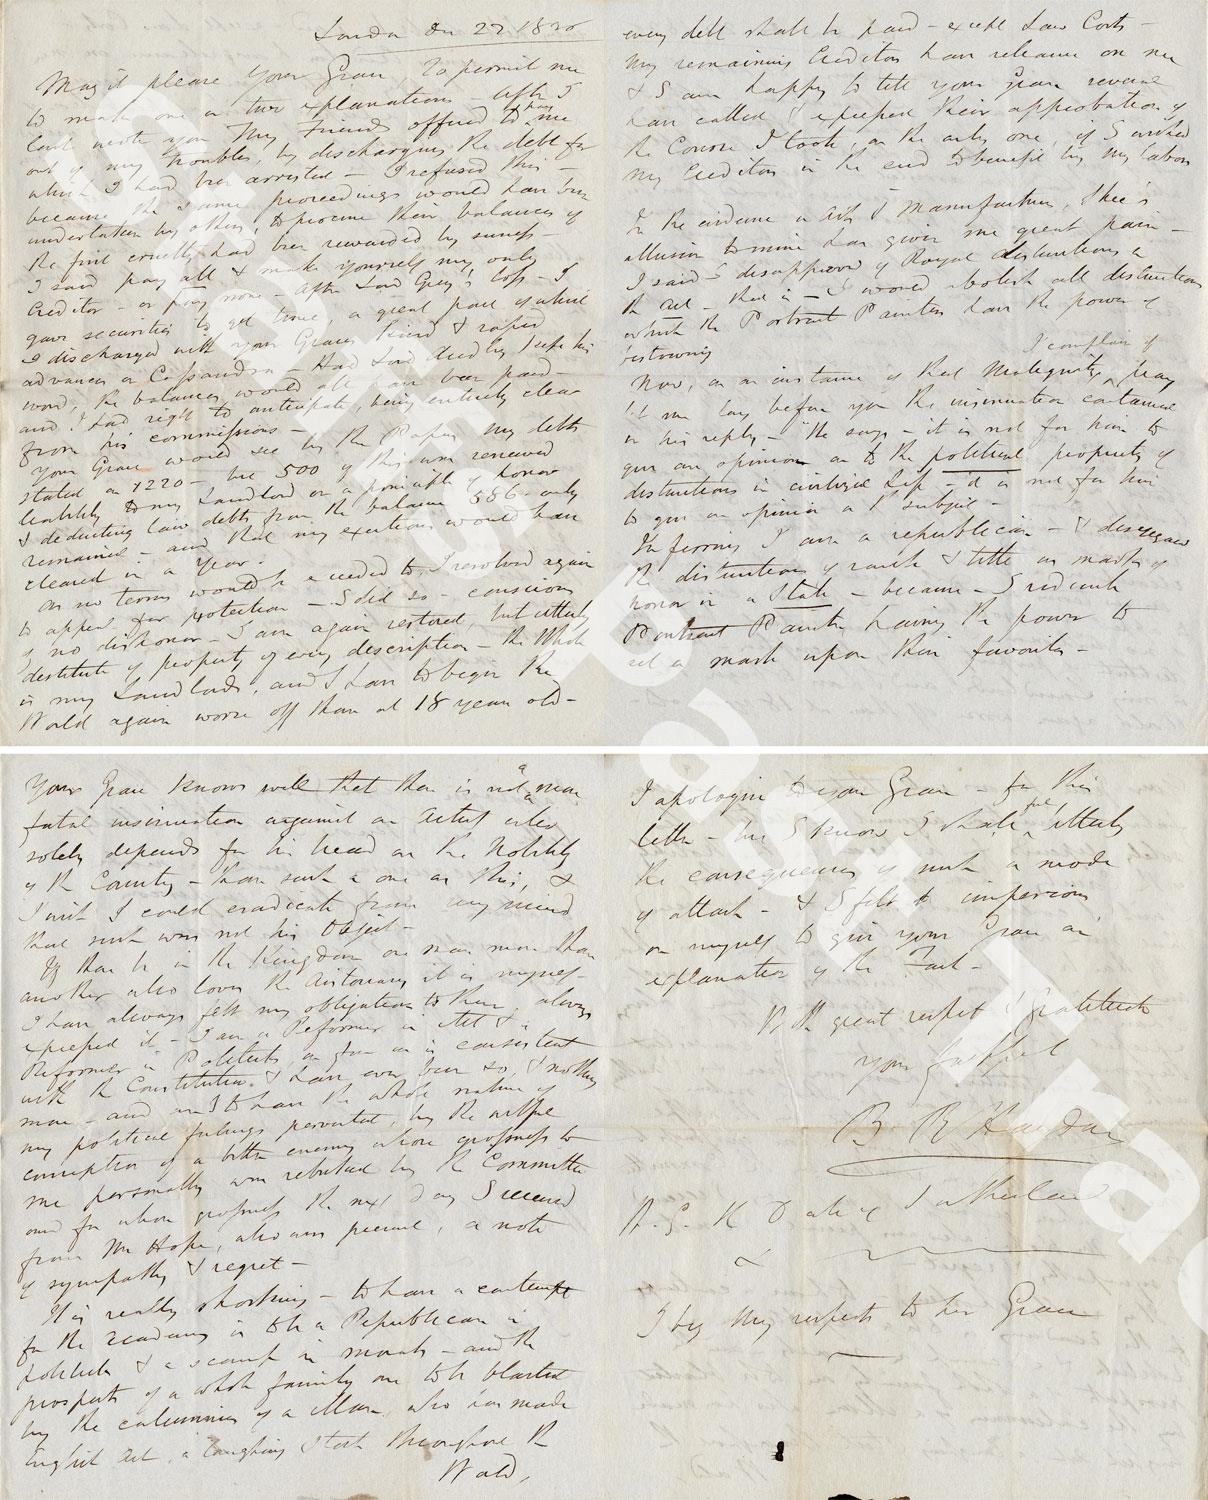 London 22 18
May it please Your Grace, To permit me
to make one or two explanations - After I
last wrote you My Friends offered to have me
out of my troubles, by discharging the debt for
which I had been arrested - I refused this -
because the same proceedings would have been
undertaken by others, to procure their balances if
the first cruelty had been rewarded by success -
I said pay all & make yourselves my only
Creditor - or pay none - After Lord Grey's loss - I
gave securities to get time, a great part of which
I discharged with your Graces kind & rapid
advances on Cassandra - Had Lord Audley kept his
word, the balances would all have been paid -
and I had right to anticipate, being entirely clear
from his commissions -
Your Grace would see by the Papers my debts
stated as 1220 - but 500 of this was renewed
liability to my Landlord on a principle of honor
& deducting law debts from the balance 586 - only
remained - and that my exertions would have
cleared in a Year.
As no terms would be acceeded to, I resolved again
to appeal for protection - I did so - conscious
of no dishonor - I am again restored, but utterly
destitute of property of every description - the Whole
is my Landlords, and I have to begin the
World again worse off than at 18 years old -
every debt shall be paid - except Law Costs -
My remaining Creditors have reliance on me
& I am happy to tell your Grace several
have called & expressed their approbation of
the Course I took, as the only one, if I wished
my Creditors in the end to benefit by my labors
In the evidence on Arts & Manufactures, Shee's
allusion to mine has given me great pain -
I said I disapproved of Royal distinctions in
the art - that is - I would abolish all distinctions
which the Portrait Painters have the power of
bestowing
I complain of
Now, as an instance of that Malignity, pray
let me lay before you the insinuation contained
in his reply - "He says - it is not for him to
give an opinion as to the political property of
distinctions in civilized life - it is not for him
to give an opinion on subject -
Inferring I am a republican - & disregard
the distinctions of rank & title as marks of
honor in a State - because - I ridicule
Portrait Painters having the power to
set a mark upon their favorites -
Your Grace knows well that there is not a more
fatal insinuation against an Artist who
solely depends for his bread on the Nobility
of the Country - than such a one as this, &
I wish I could eradicate from my mind
that such was not his Object -
If there be in the Kingdom one man more than
another who loves the Aristocracy it is myself -
I have always felt my obligations to them always
expressed it - I am a Reformer in Art & a
Reformer in Politicks as far as is consistent
with the Constitution & have ever been so, & nothing
more - and am I to have the whole nature of
my political feelings perverted, by the
conception of a bitter enemy whose grossness to
me personally was rebuked by the Committee
and for whose grossness the next day I received
from Mr Hope, who was present, a note
of sympathy & regret -
It is really shocking - to have a contempt
for the Academy is to be a Republican in
politicks & a scamp in morals - and the
prospects of a whole family are to be blasted
by the calumnies of a Man, who has made
English Art, a laughing Stock throughout the
World,
I apologise to your Grace - for this
letter - but I know I shall feel bitterly
the consequences of such a mode
of attack - & I felt it imperious
on myself to give your Grace an
explanation of the Fact -
With great respect & Gratitude
your faithful
B R Haydon
H. G. the Duke of Sutherland
I beg my respects to her Grace